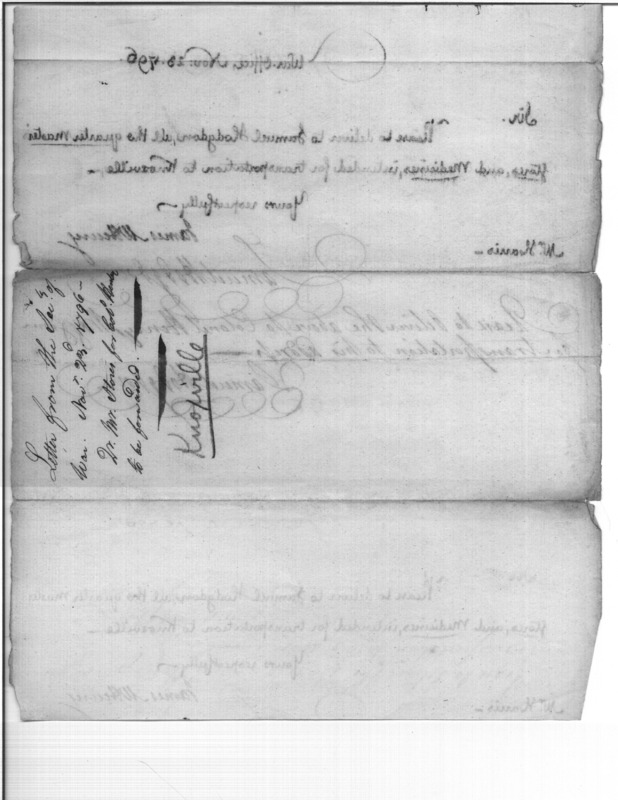 War Office Nov: 23. 1796.
Sir.
Please to deliver to Samuel Hodgdon, all the quarter master
stores, and Medicines, intended for transportation to Knoxville –
Yours respectfully
James McHenry
Mr. Harris –
Samuel Hodgdon
Please to deliver the above to Colonel Henley
for transportation to his
Letter from the Secy. of
War. Novr. 23d. 1796 –
Qr. Mr. Stores for Colo. Henley
to be forwarded.
Knoxville
Please to deliver to Samuel Hodgdon, all the quarter master
stores, and Medicines, intended for transportation to Knoxville –
Yours respectfully
James McHenry
Mr. Harris –